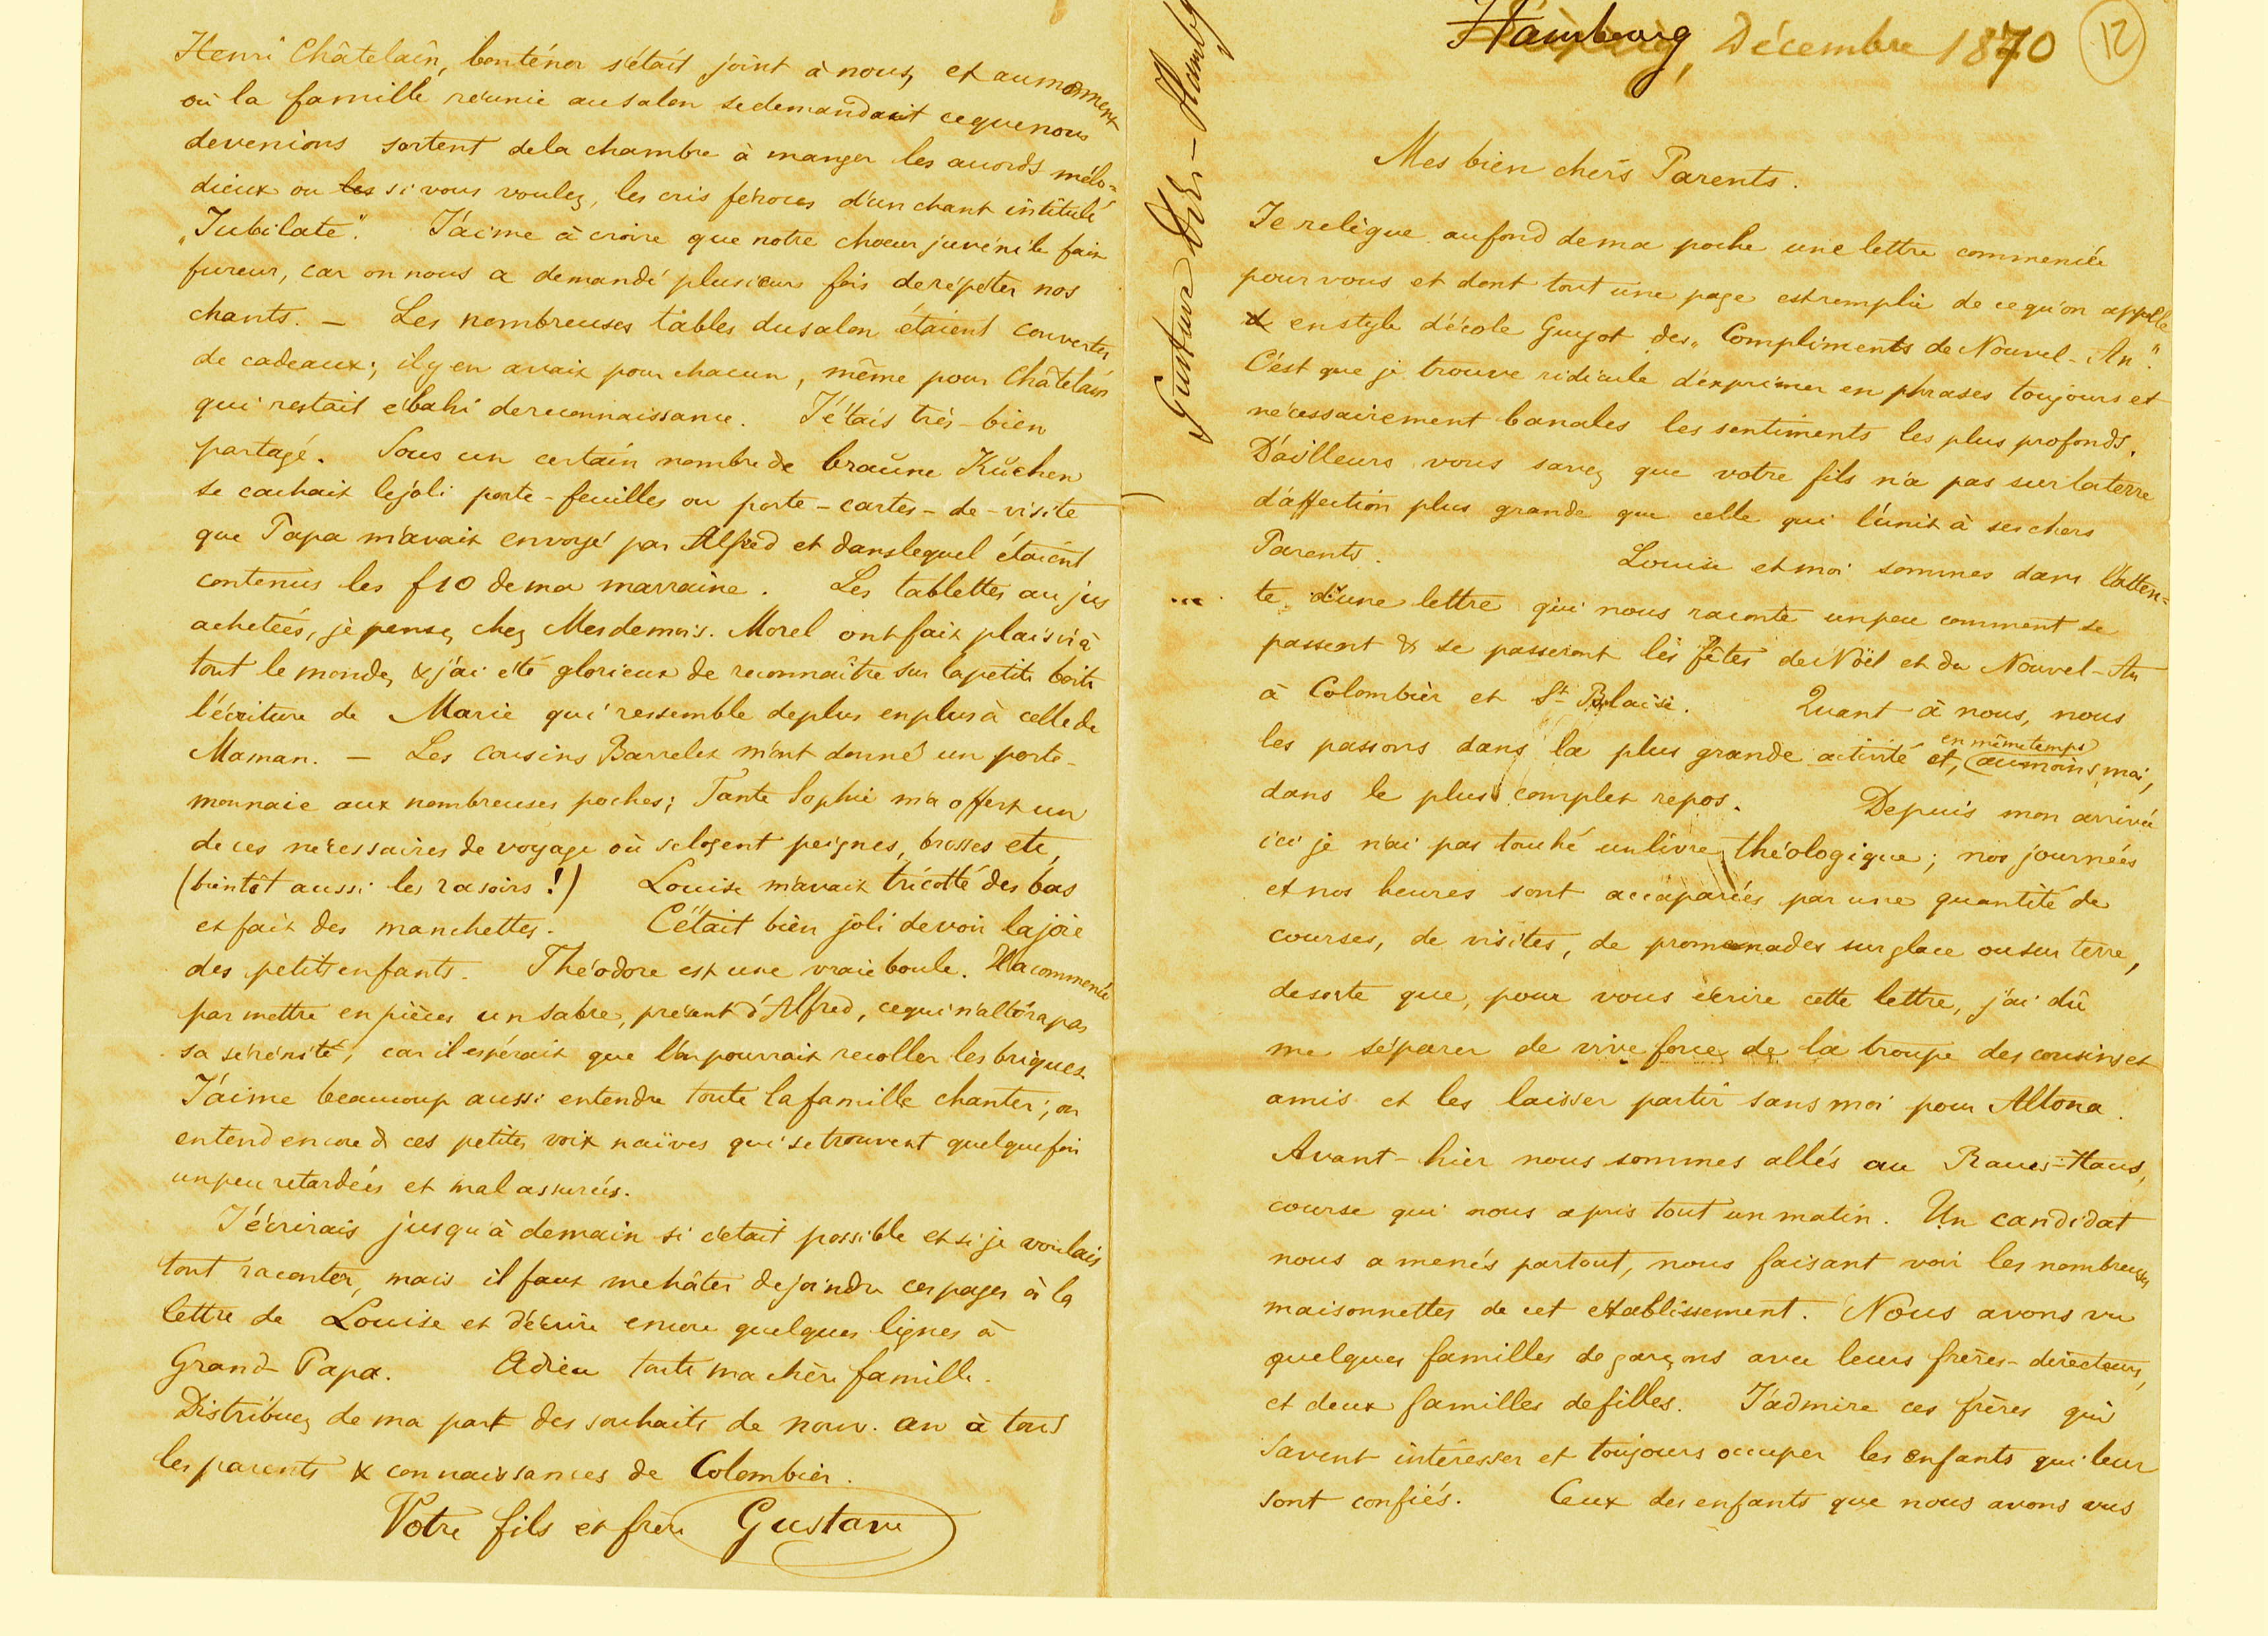 Hambourg, Décembre 1870
12
Mes bien chers Parents.
Je relègue au fond de ma poche une lettre commencée
pour vous et dont tout une page est remplie de ce qu'on appelle
en style d'école Guyot des „Compliments de Nouvel-An".
C'est que je trouve ridicule d'exprimer en phrases toujours et
nécessairement banales les sentiments les plus profonds.
D'ailleurs vous savez que votre fils n'a pas sur la terre
d'affection plus grande que celle qui l'unit à ses chers
Parents. Louise et moi sommes dans l'atten=
te d'une lettre qui nous raconte un peu comment se
passent & se passeront les fêtes de Noël et du Nouvel-An
à Colombier et St-Blaise. Quant à nous, nous
les passons dans la plus grande activité et, en même temps (au moins, moi,
dans le plus complet repos. Depuis mon arrivée
ici je n'ai pas touché un livre théologique; nos journées
et nos heures sont accaparées par une quantité de
courses, de visites, de promenades sur glace ou sur terre,
de sorte que, pour vous écrire cette lettre, j'ai dû
me séparer de vive force de la troupe des cousins et
amis et les laisser partir sans moi pour Altona.
Avant-hier nous sommes allés au Raues-Haus,
course qui nous a pris tout un matin. Un candidat
nous a menés partout, nous faisant voir les nombreuses
maisonnettes de cet établissement. Nous avons vu
quelques familles de garçons avec leurs frères-directeurs,
et deux familles de filles. J'admire ces frères qui
savent intéresser et toujours occuper les enfants qui leur
sont confiés. Ceux des enfants que nous avons vus
Henri Châtelain, bon ténor s'était joint à nous, et au moment
où la famille réunie au salon se demandait ce que nous
devenions sortent de la chambre à manger les accords mélo=
dieux ou les si vous voulez, les cris féroces d'un chant intitulé
„Jubilate". J'aime à croire que notre choeur juvénile fait
fureur, car on nous a demandé plusieurs fois de répéter nos
chants. — Les nombreuses tables du salon étaient couvertes
de cadeaux; il y en avait pour chacun, même pour Châtelain
qui restait ébahi de reconnaissance. J'étais très-bien
partagé. Sous un certain nombre de braune Kuchen
se cachait le joli porte-feuilles ou porte-cartes-de-visite
que Papa m'avait envoyé par Alfred et dans lequel étaient
contenus les f 10 de ma marraine. Les tablettes au jus
achetées, je pense, chez Mesdemois. Morel ont fait plaisir à
tout le monde, & j'ai été glorieux de reconnaître sur la petite boite
l'écriture de Marie qui ressemble de plus en plus à celle de
Maman. — Les cousins Barrelet m'ont donné un porte-
monnaie aux nombreuses poches; Tante Sophie m'a offert un
de ces nécessaires de voyage où se logent peignes, brosses etc,
(bientôt aussi les rasoirs!) Louise m'avait tricotté des bas
et fait des manchettes. C'était bien joli de voir la joie
des petits enfants. Théodore est une vraie boule. Il a commencé
par mettre en pièces un sabre, présent d'Alfred, ce qui n'altéra pas
sa sérénité, car il espérait que l'on pourrait recoller les briques.
J'aime beaucoup aussi entendre toute la famille chanter; on
entend encore d ces petites voix naïves qui se trouvent quelquefois
un peu retardées et mal assurées.
J'écrirais jusqu'à demain si c'était possible et si je voulais
tout raconter, mais il faut me hâter de joindre ces pages à la
lettre de Louise et d'écrire encore quelques lignes à
Grand-Papa. Adieu toute ma chère famille.
Distribuez de ma part des souhaits de nouv. an à tous
les parents & connaissances de Colombier.
Votre fils et frère Gustave